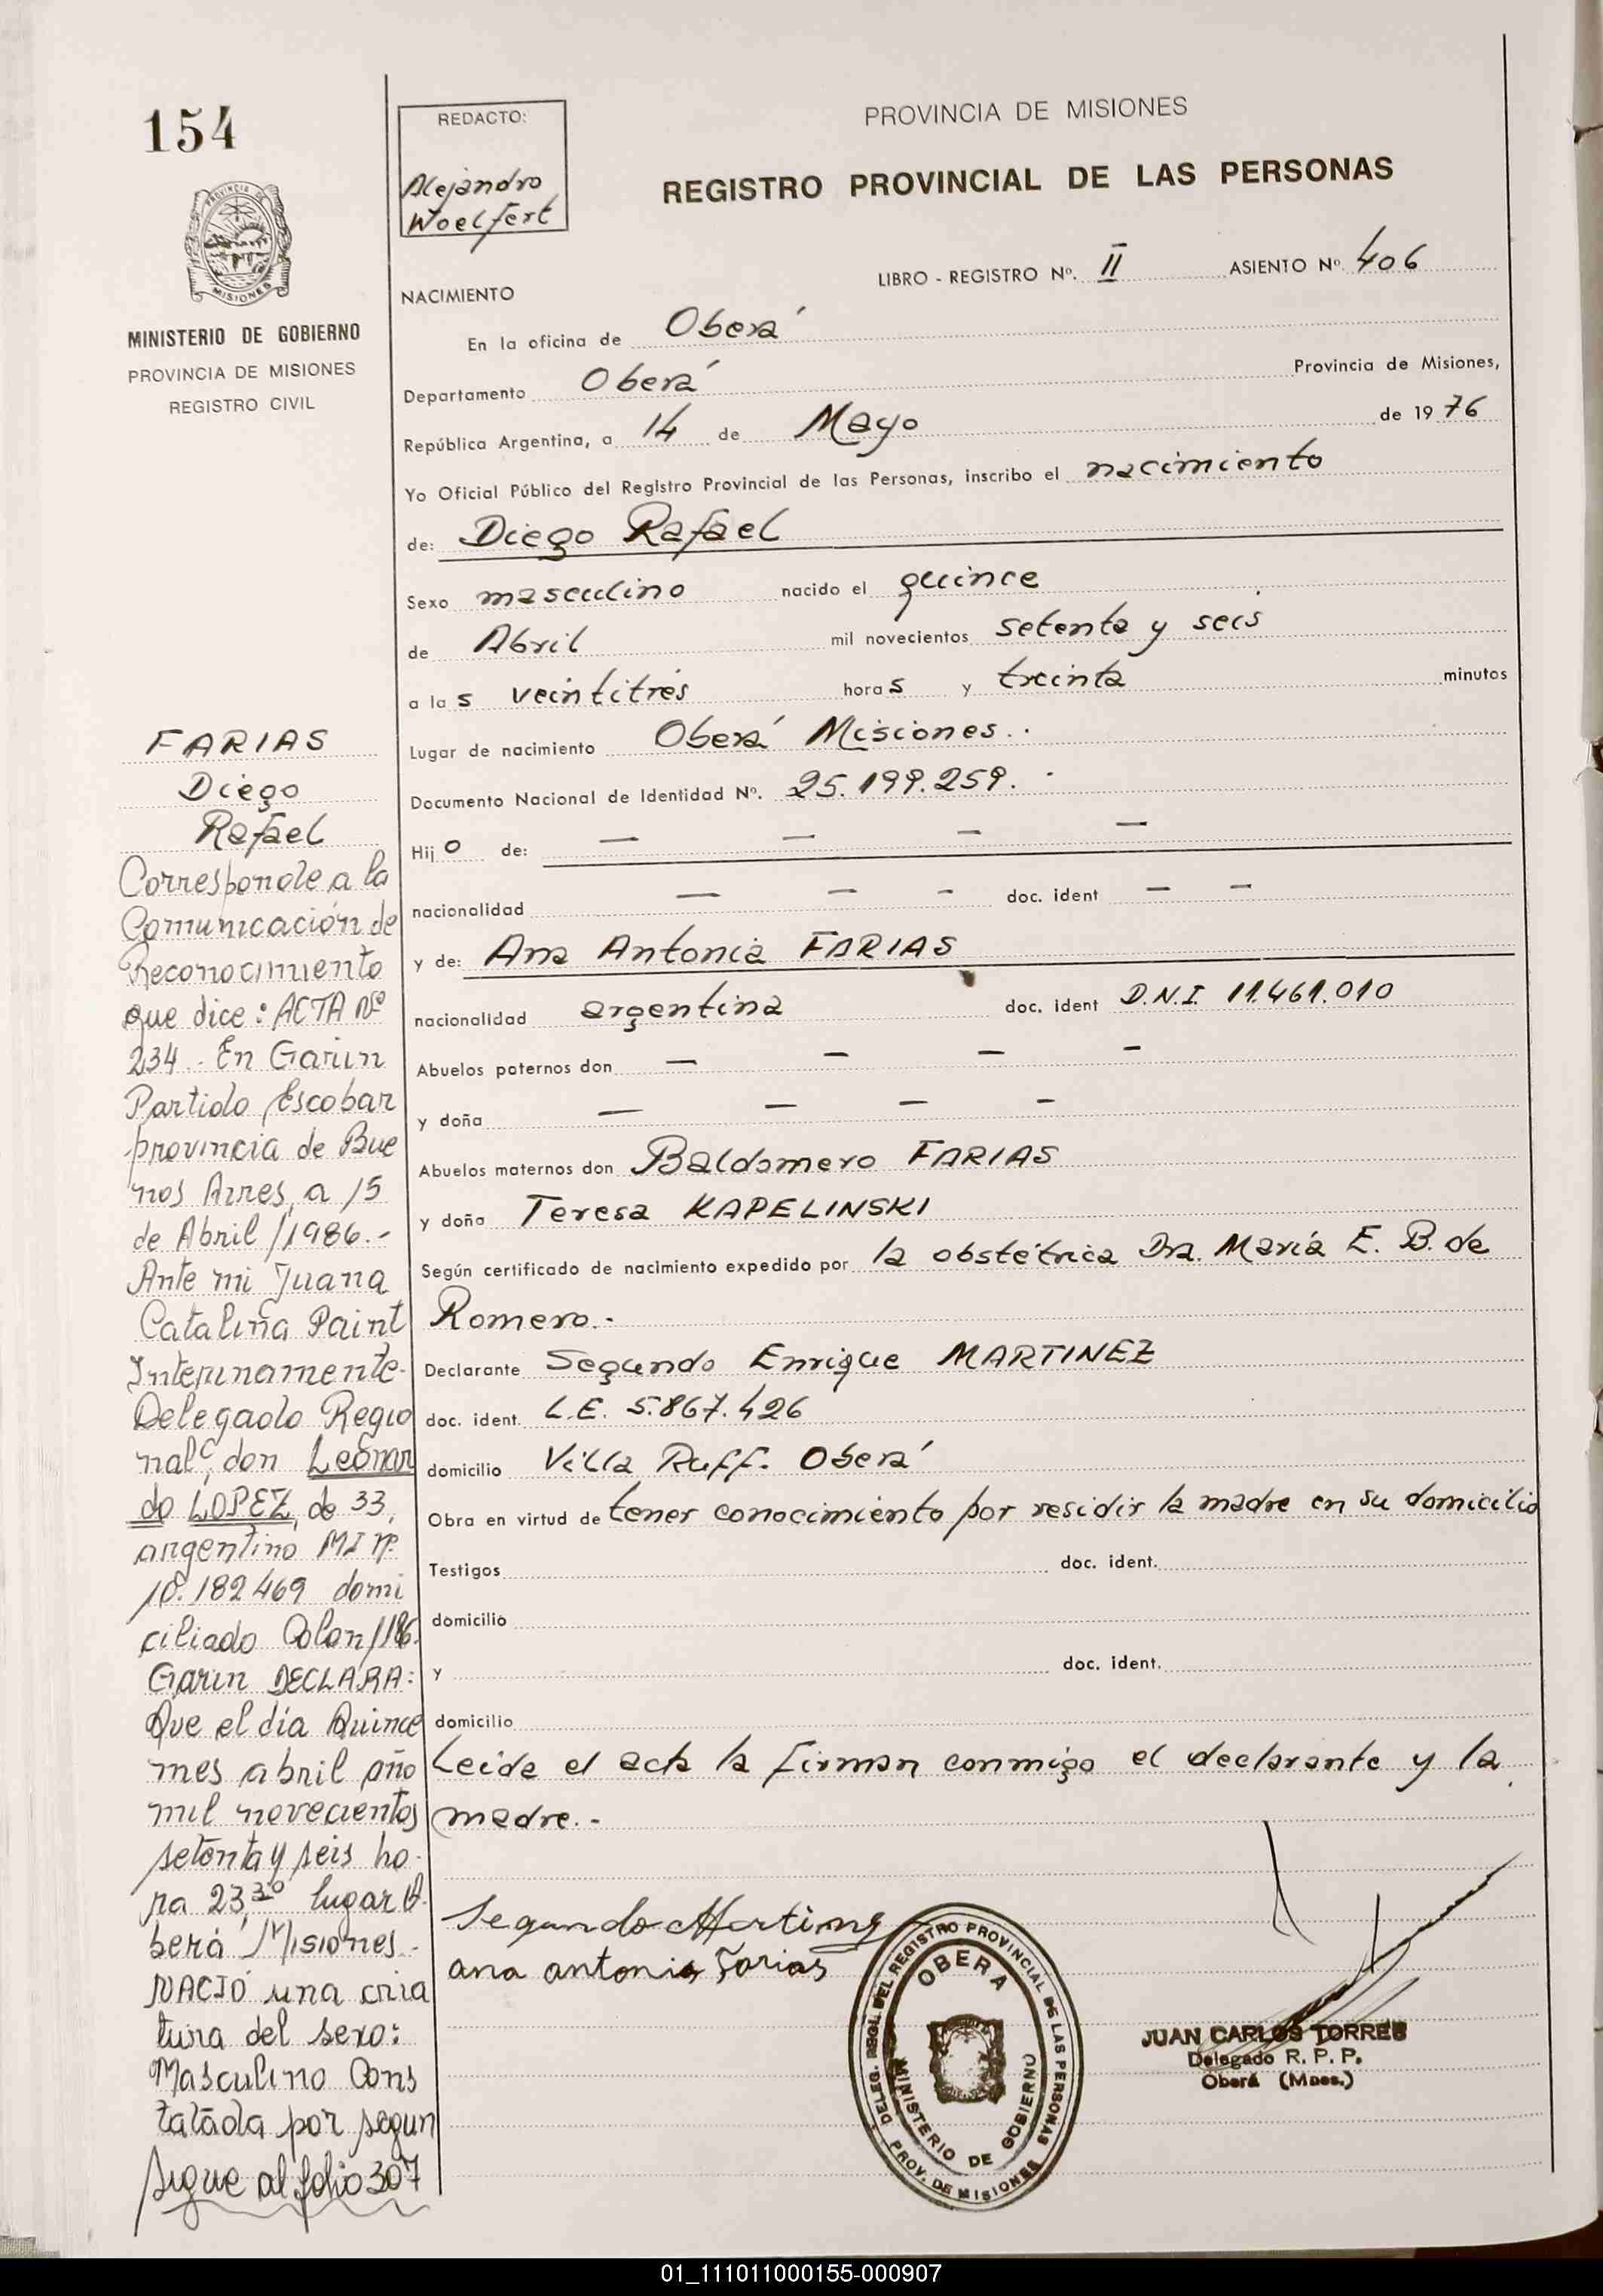 154
PROVINCIA DE MISIONES
MINISTERIO DE GOBIERNO
PROVINCIA DE MISIONES
REGISTRO CIVIL
REDACTO:
Alejandro
Woelfert
PROVINCIA DE MISIONES
REGISTRO PROVINCIAL DE LAS PERSONAS
LIBRO - REGISTRO Nº. II ASIENTO Nº 406
NACIMIENTO
En la oficina de Oberá
Departamento Oberá Provincia de Misiones,
República Argentina, a 14 de Mayo de 1976
Yo Oficial Público del Registro Provincial de las Personas, inscribo el nacimiento
de: Diego Rafael
Sexo masculino nacido el quince
de Abril mil novecientos setenta y seis
a las veintitrés horas y treinta minutos
Lugar de nacimiento Oberá Misiones.
Documento Nacional de Identidad Nº. 25.199.259.
Hijo de: — — — —
nacionalidad — — - doc. ident — —
y de: Ana Antonia FARIAS
nacionalidad argentina doc. ident D.N.I. 11.461.010
Abuelos paternos don — — — —
y doña — — — —
Abuelos maternos don Baldomero FARIAS
y doña Teresa KAPELINSKI
Según certificado de nacimiento expedido por la obstétrica Dra. María E. B. de
Romero.-
Declarante Segundo Enrique MARTINEZ
doc. ident. L.E. 5.867.426
domicilio Villa Ruff. Oberá
Obra en virtud de tener conocimiento por residir la madre en su domicilio
Testigos doc. ident.
domicilio
y doc. ident.
domicilio
Leída el acta la firman conmigo el declarante y la
madre.-
Segundo Martinez
ana antonia Farias
DELEG. REGL. DEL REGISTRO PROVINCIAL DE LAS PERSONAS
OBERA
MINISTERIO DE GOBIERNO
PROV. DE MISIONES
JUAN CARLOS TORRES
Delegado R. P. P.
Oberá (Mnes.)
FARIAS
Diego
Rafael
Corresponde a la
Comunicación de
Reconocimiento
que dice: ACTA Nº
234.- En Garin
Partido Escobar
provincia de Bue
nos Aires, a 15
de Abril /1986.-
Ante mi Juana
Catalina Paint
Interinamente-
Delegado Regio
nal, don Leonar
do LOPEZ, de 33,
argentino MI nº
10.182469 domi
ciliado Colon 1186.
Garin DECLARA:
Que el día Quince
mes abril año
mil novecientos
setenta y seis ho-
ra 23,30 lugar O-
berá Misiones.-
NACIÓ una cria
tura del sexo:
Masculino Cons
tatada por segun
sigue al folio 307
01_111011000155-000907